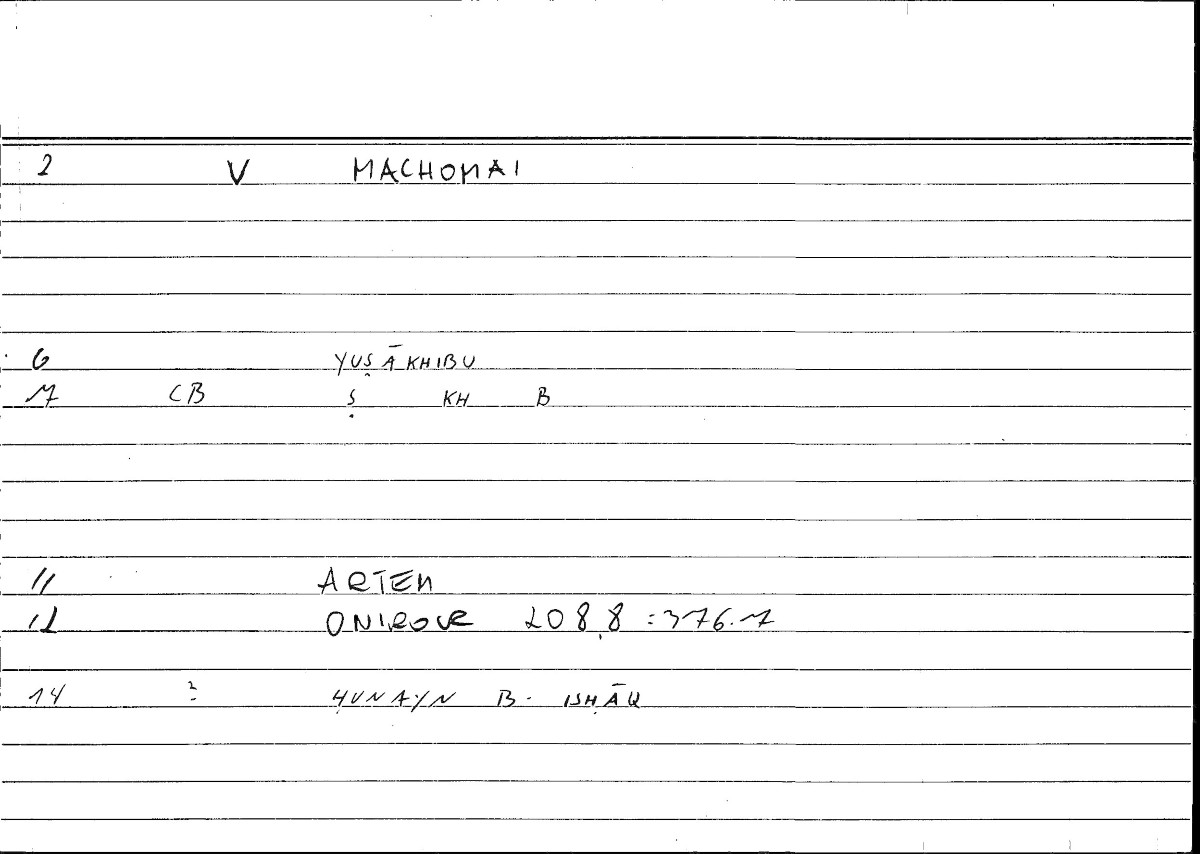 2 V MACHOMAI
6 YUṢĀKHIBU
7 CB Ṣ KH B
11 ARTEM
12 ONIROCR 208,8 : 376.7
14 ? ḤUNAYN B. ISḤĀQ